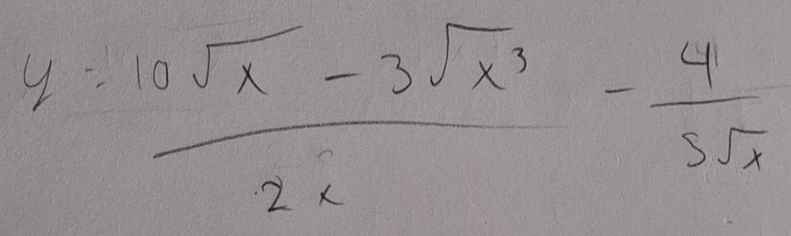 y = (10√x - 3√x³)/(2x) - 4/(5√x)